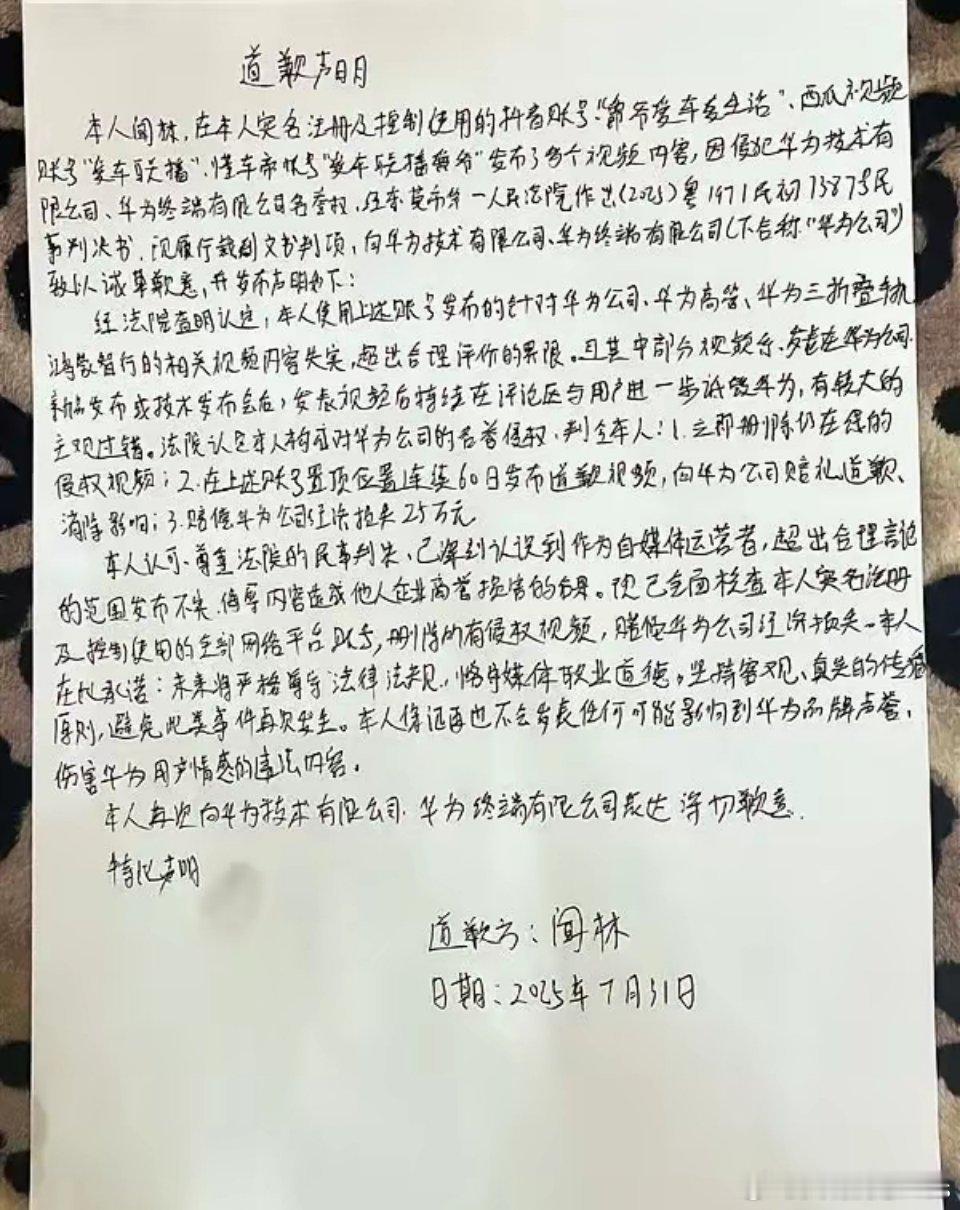 道歉声明
本人闻林,在本人实名注册及控制使用的抖音账号“爵爷爱车爱生活”、西瓜视频
账号“爱车联播”、懂车帝帐号“爱车联播爵爷”发布了多个视频内容,因侵犯华为技术有
限公司、华为终端有限公司名誉权,经东莞市第一人民法院作出(2025)粤1971民初7387号民
事判决书,现履行裁判文书判项,向华为技术有限公司、华为终端有限公司(下合称“华为公司”)
致以诚挚歉意,并发布声明如下:
经法院查明认定,本人使用上述账号发布的针对华为公司、华为高管、华为三折叠手机
鸿蒙智行的相关视频内容失实,超出合理评价的界限。且其中部分视频系发表在华为公司
新品发布或技术发布会后,发表视频后持续在评论区与用户进一步诋毁华为,有较大的
主观过错。法院认定本人构成对华为公司的名誉侵权,判令本人:1.立即删除仍在线的
侵权视频;2.在上述账号置顶位置连续60日发布道歉视频,向华为公司赔礼道歉、
消除影响;3.赔偿华为公司经济损失25万元.
本人认可、尊重法院的民事判决,已深刻认识到作为自媒体运营者,超出合理言论
的范围发布不实、侮辱内容造成他人企业商誉损害的后果。现已全面核查本人实名注册
及控制使用的全部网络平台账号,删除所有侵权视频,赔偿华为公司经济损失。本人
在此承诺:未来将严格遵守法律法规,恪守媒体职业道德。坚持客观、真实的传播
原则,避免此类事件再次发生。本人保证再也不会发表任何可能影响到华为品牌声誉、
伤害华为用户情感的违法内容。
本人再次向华为技术有限公司、华为终端有限公司表达深切歉意.
特此声明
道歉方:闻林
日期:2025年7月31日